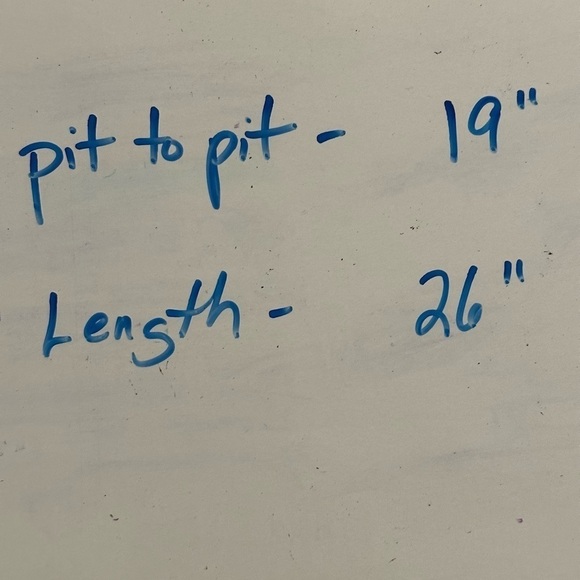 pit to pit - 19"
Length - 26"